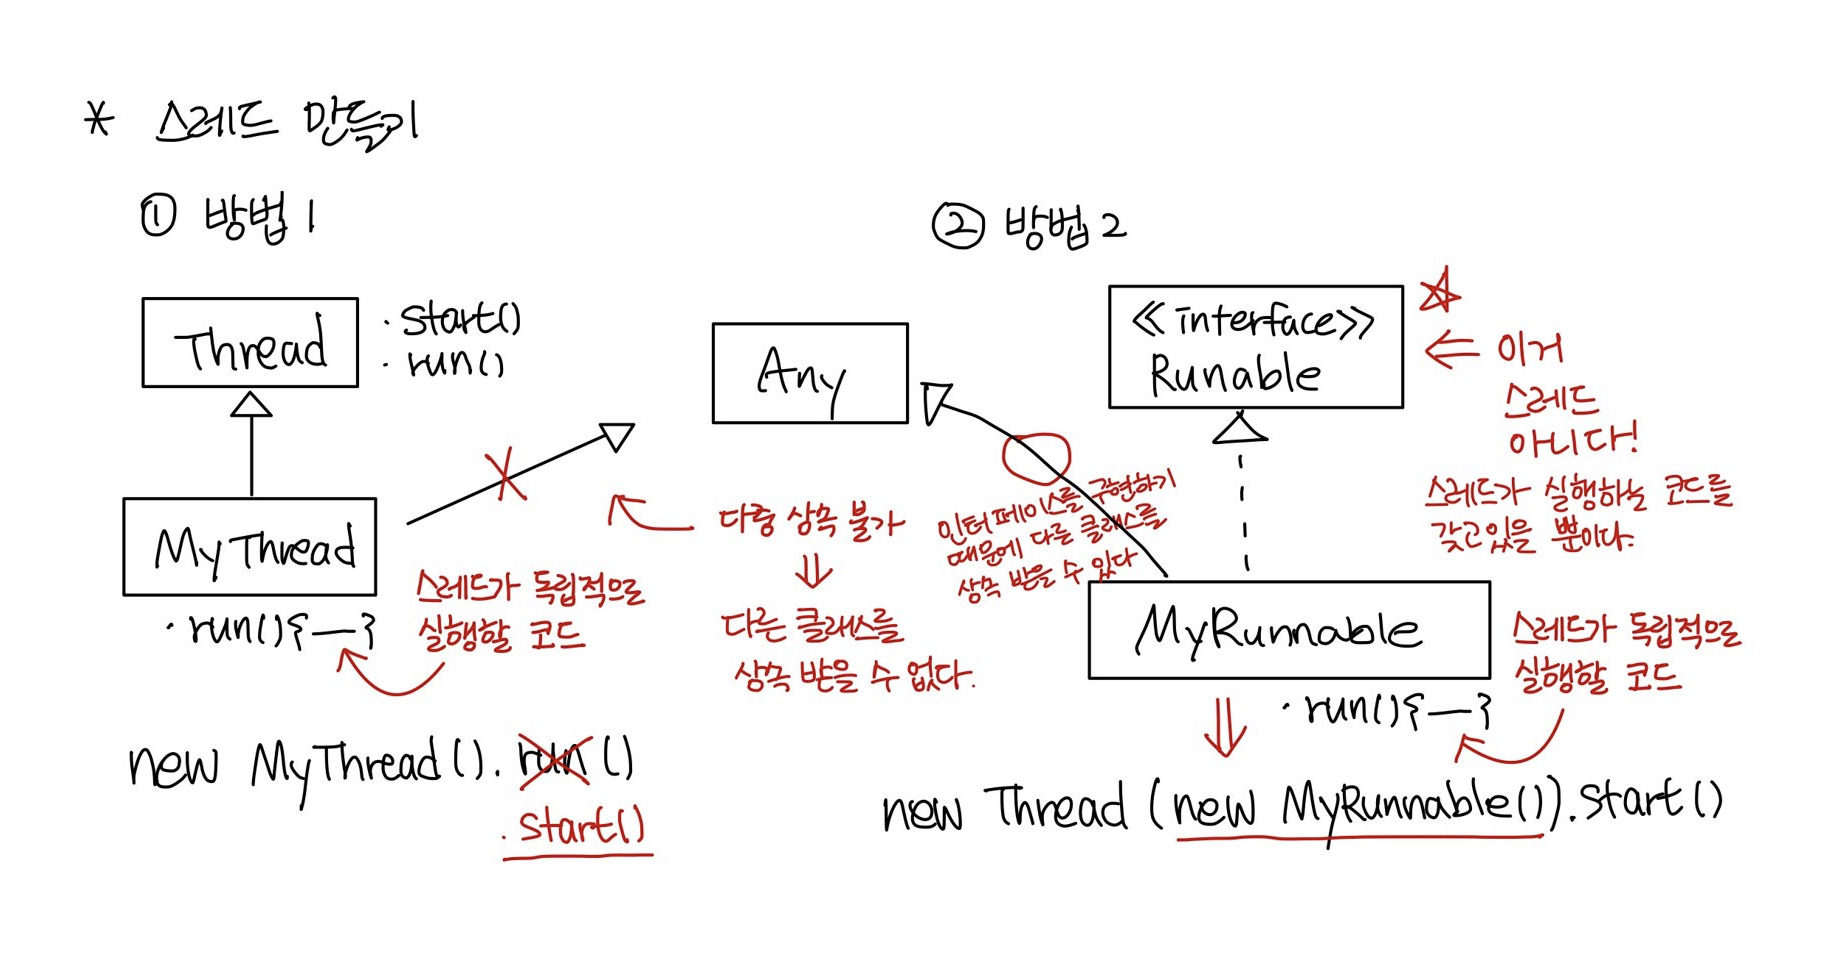 * 스레드 만들기
① 방법 1
Thread
· start()
· run()
MyThread
· run(){—}
스레드가 독립적으로
실행할 코드
new MyThread(). run ()
. start()
Any
다중 상속 불가
⇓
다른 클래스를
상속 받을 수 없다.
② 방법 2
≪interface≫
Runable
☆
⇐ 이거
스레드
아니다!
스레드가 실행하는 코드를
갖고있을 뿐이다.
인터페이스를 구현하기
때문에 다른 클래스를
상속 받을 수 있다
MyRunnable
· run(){—}
스레드가 독립적으로
실행할 코드
⇓
new Thread (new MyRunnable()).start()